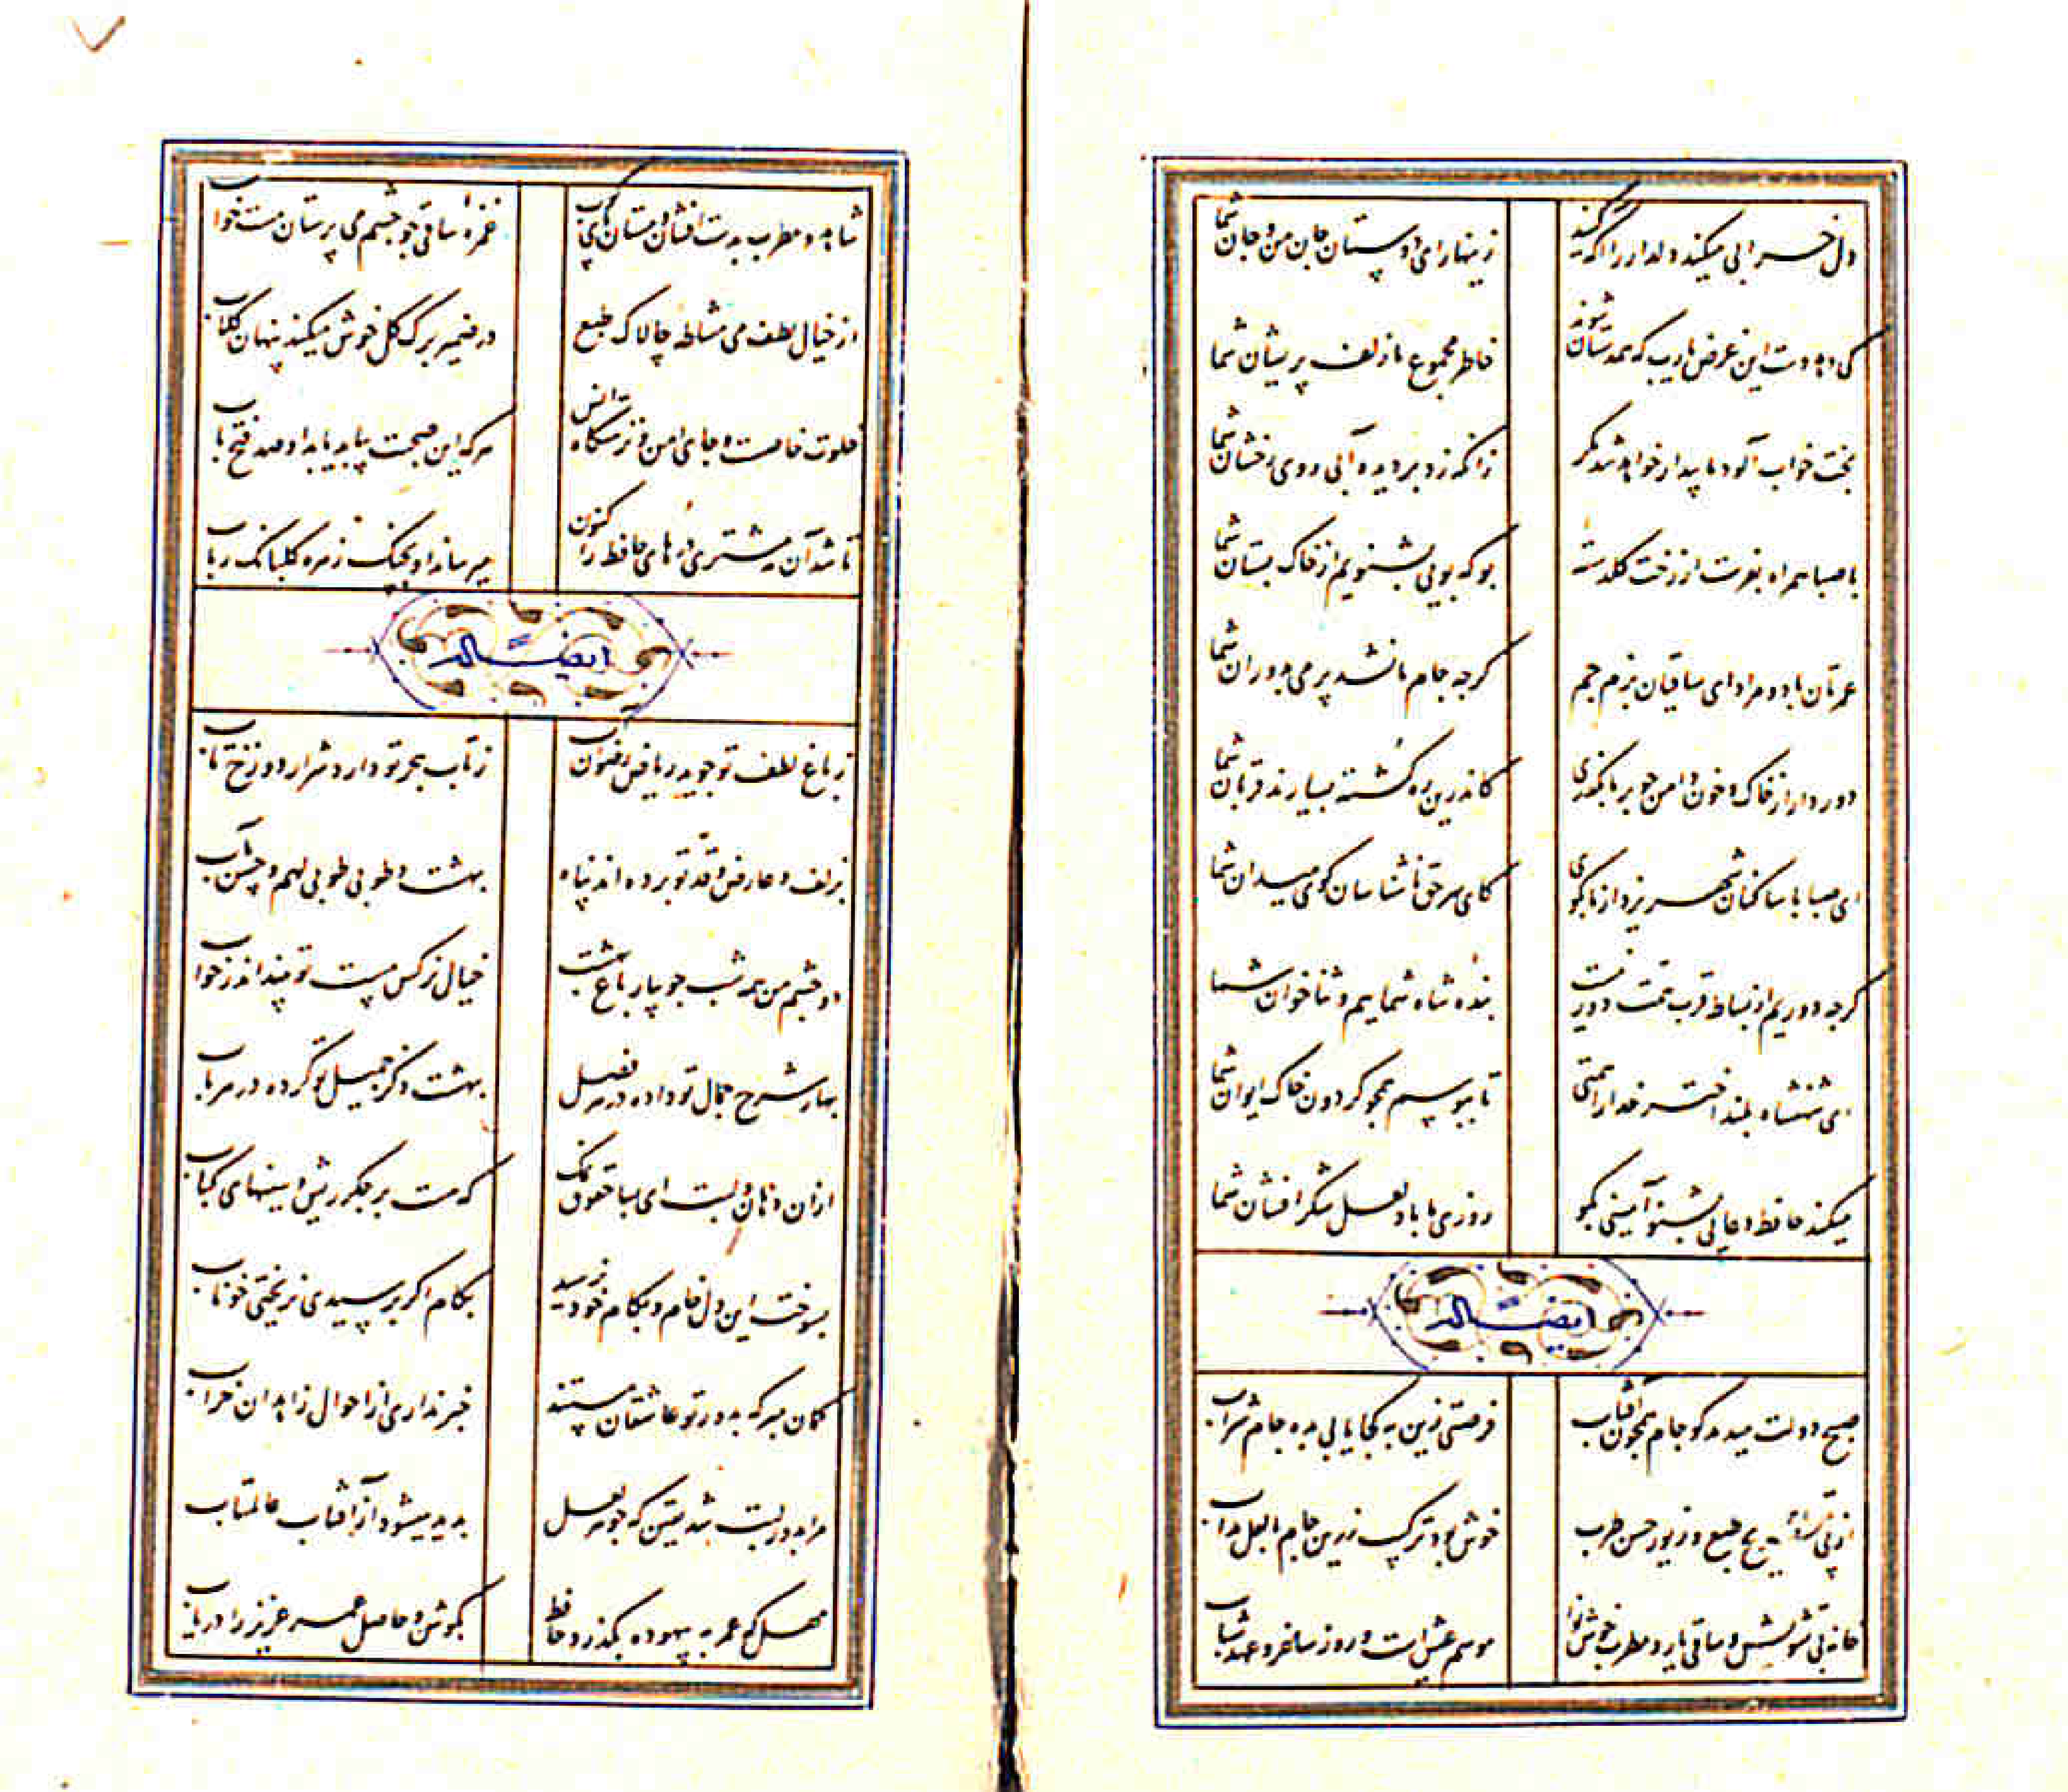 دل خرابی میکند دلدار را آگه کنید
زینهار ای دوستان جان من و جان شما
کی دهد دست این غرض یا رب که همدستان شوند
خاطر مجموع ما زلف پریشان شما
بخت خواب آلود ما بیدار خواهد شد مگر
زانکه زد بر دیده آبی روی رخشان شما
با صبا همراه بفرست از رخت گلدسته
بو که بویی بشنویم از خاک بستان شما
عمرتان باد و مراد ای ساقیان بزم جم
گرچه جام ما نشد پر می بدوران شما
دور دار از خاک و خون دامن چو بر ما بگذری
کاندرین ره کشته بسیارند قربان شما
ای صبا با ساکنان شهر یزد از ما بگوی
کای سر حق ناشناسان گوی میدان شما
گرچه دوریم از بساط قرب همت دور نیست
بنده شاه شماییم و ثناخوان شما
ای شهنشاه بلند اختر خدا را همتی
تا ببوسم همچو گردون خاک ایوان شما
میکند حافظ دعایی بشنو آمینی بگو
روزی ما باد لعل شکر افشان شما
ایضا له
صبح دولت میدمد کو جام همچون آفتاب
فرصتی زین به کجا یابی بده جام شراب
از پی تفریح طبع و زیور حسن طرب
خوش بود ترکیب زرین جام با لعل مذاب
خانه بی تشویش و ساقی یار و مطرب خوش نوا
موسم عیش است و روز ساغر و عهد شباب
شاهد و مطرب بدست افشان و مستان پای کوب
غمزه ساقی چو چشم می پرستان مست خواب
از خیال لطف می مشاطه چالاک طبع
در ضمیر برک گل خوش میکند پنهان گلاب
خلوت خاصست و جای امن و نزهتگاه انس
هرکه این صحبت بیابد یابد او صد فتح باب
تا شد آن مه مشتری درهای حافظ را کنون
میرساند او بچنک زهره گلبانک رباب
ایضا له
ز باغ لطف تو جوید ریاض رضوان آب
ز تاب هجر تو دارد شرار دوزخ تاب
بزلف و عارض و قد تو برده اند پناه
بهشت و طوبی طوبی لهم و حسن مآب
دو چشم من همه شب جویبار باغ بهشت
خیال نرکس مست تو بیند اندر خواب
بهار شرح جمال تو داده در هر فصل
بهشت ذکر جمیل تو کرده در هر باب
ازان دهان و لبت ای بسا حقوق نمک
که هست بر جگر ریش و سینهای کباب
بسوخت این دل خام و بکام خود نرسید
بکام اگر برسیدی نریختی خوناب
گمان مبر که بدور تو عاشقان مستند
خبر نداری از احوال زاهدان خراب
مرا بدور لبت شد یقین که جوهر لعل
پدید میشود از آفتاب عالمتاب
مهل که عمر به بیهوده بگذرد حافظ
بکوش و حاصل عمر عزیز را دریاب